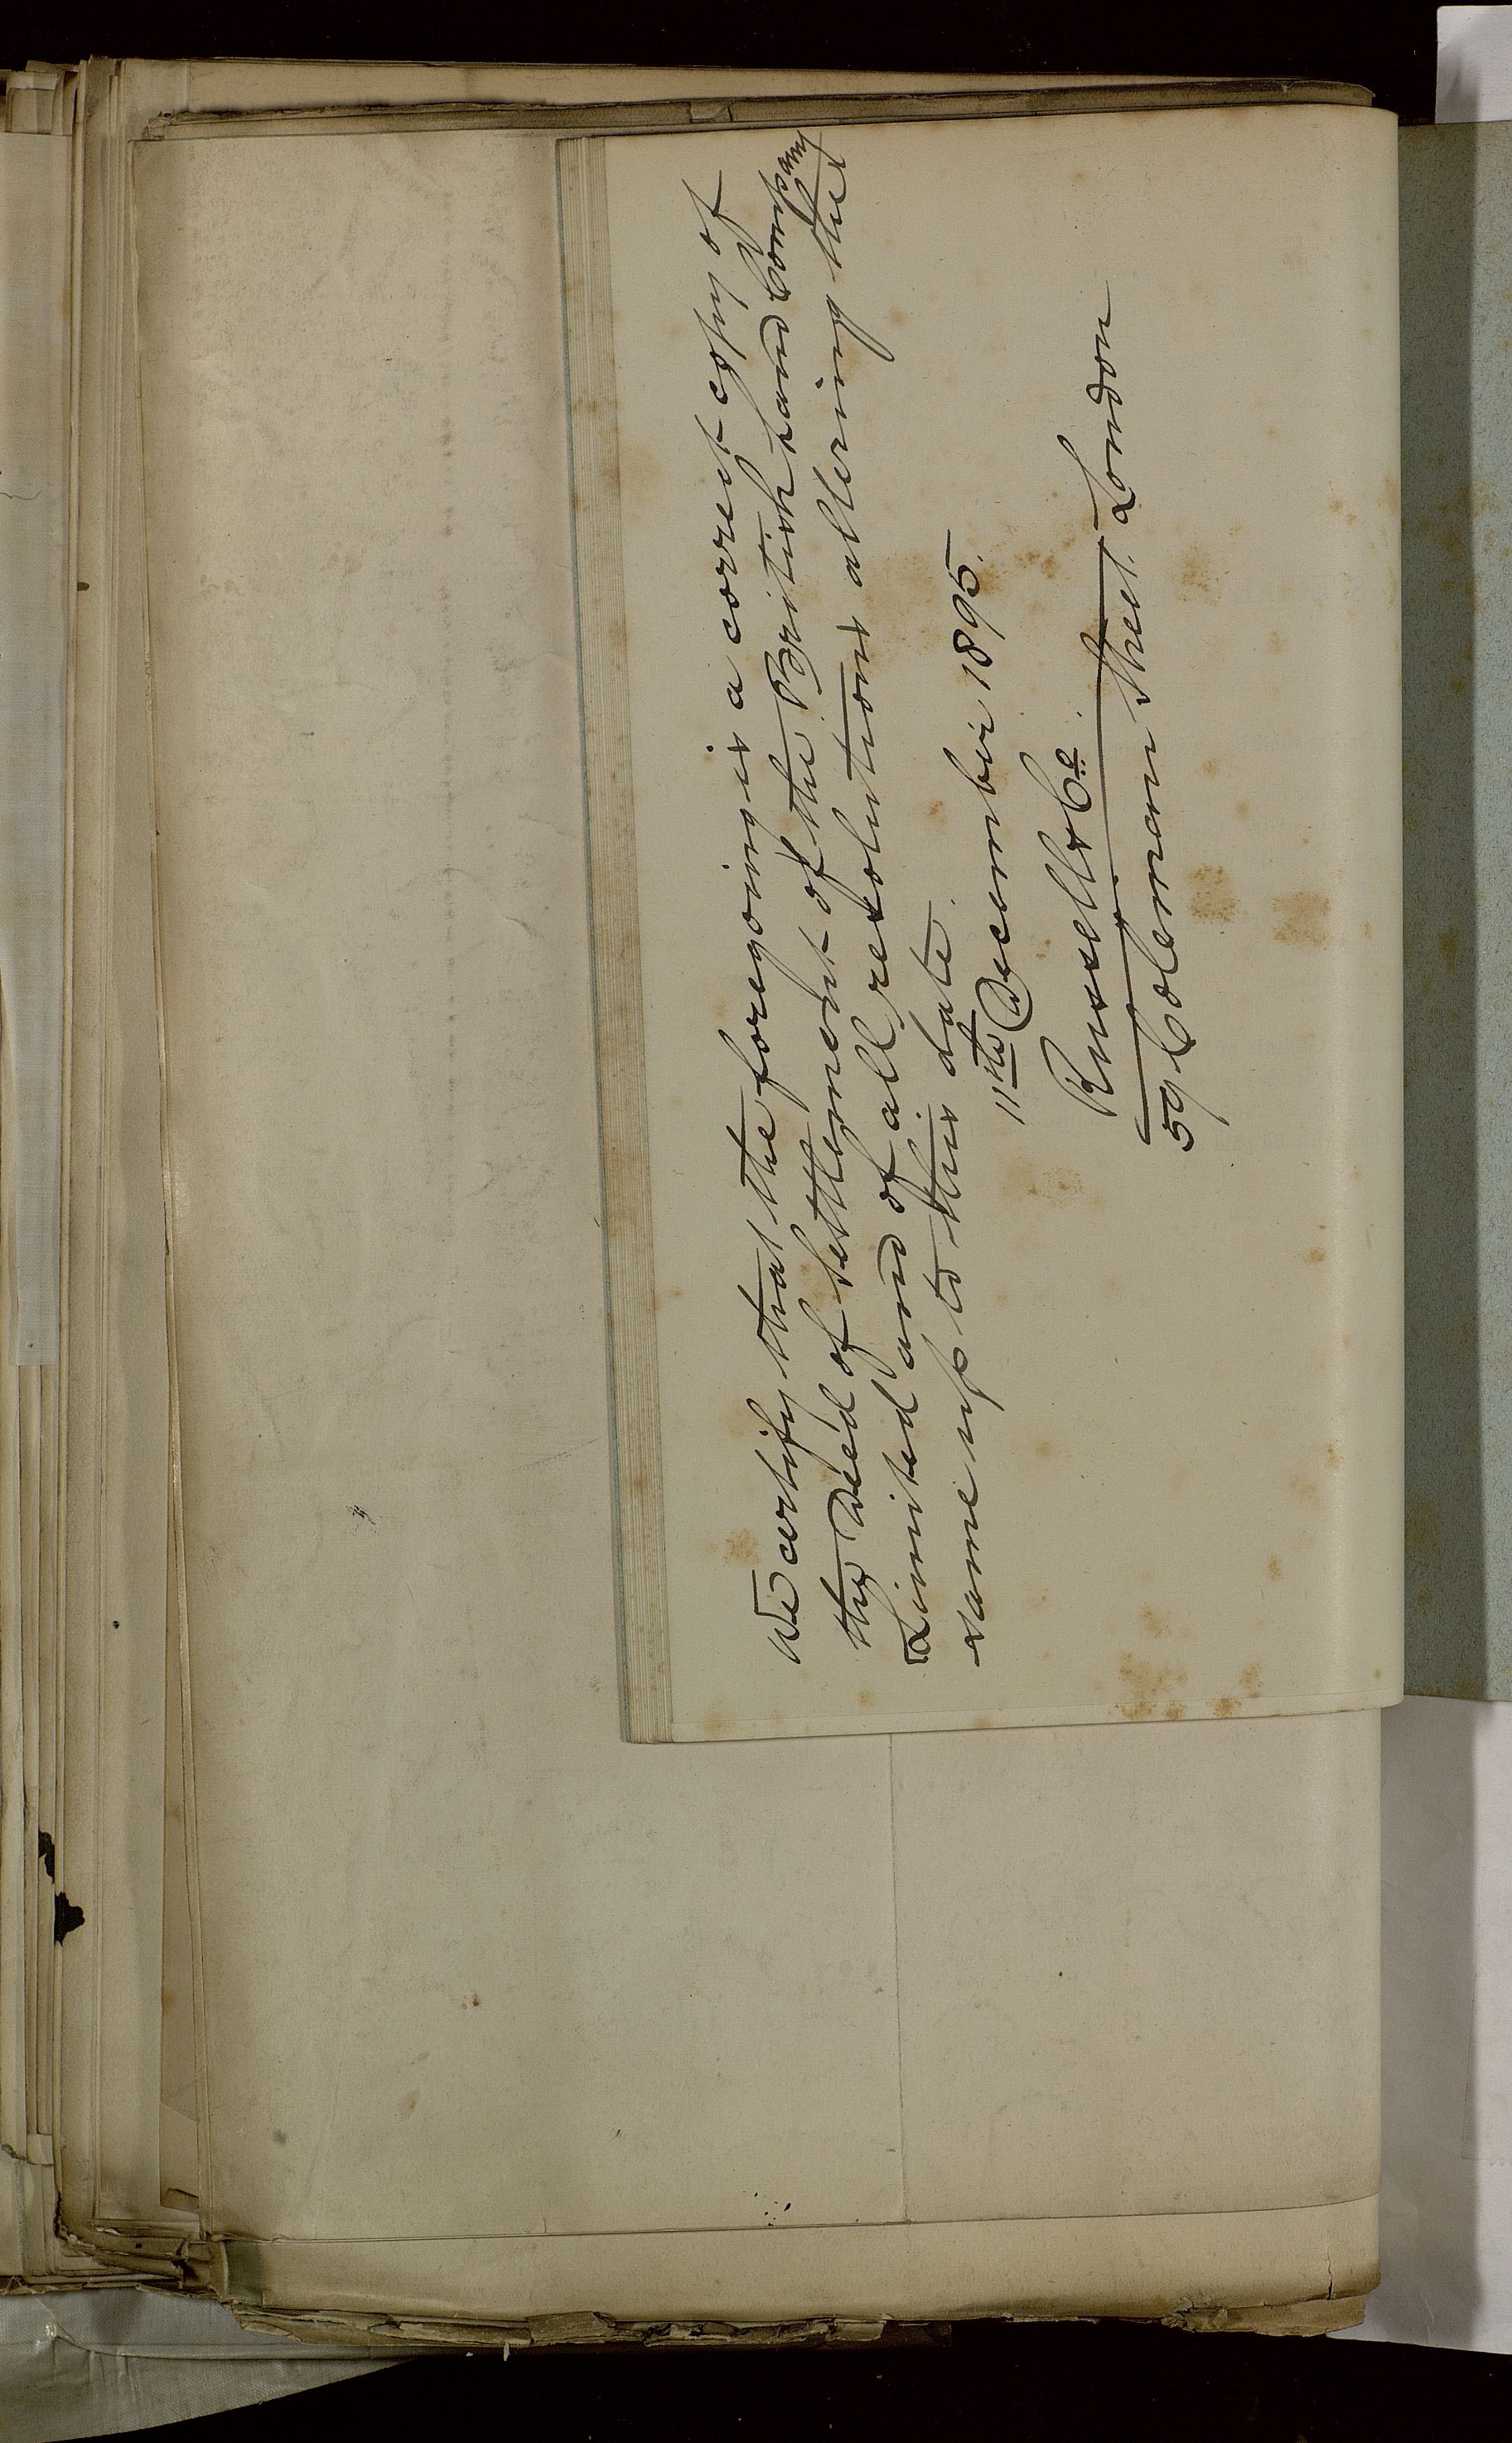 We certify that the foregoing is a correct copy of
the Deed of Settlement of the British Land Company
Limited and of all resolutions altering the
same up to this date.
11th December 1895.
Russell & Co.
59 Coleman Street London